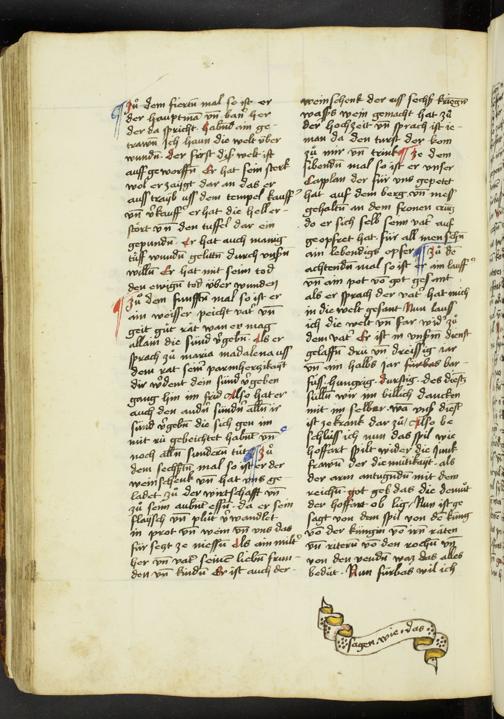 Zů dem fierin mal so ist er
der hauptma vn̄ ban her
der da spricht habnd ain ge
trawn ich haun die welt über
wundn̄. der first diser welt ist
auff geworffn̄ Er hat sein sterk
wol erzaigt dar an das er
auss trayb uss dem tempel kauff
vn̄ v̓kauff er hat die hell er
stört vn̄ den tuffel dar ein
gepundn̄. Er hat auch manig
wundn̄ gelittn̄ durch vnsn̄
willn̄ Er hat mit seim tod
den ewign̄ tod über wunden
Zů dem fünfftn̄ mal so ist er
ain weisser peicht vat̓ vn̄
geit gůt rat wan er mag
allain die sünd v̓gebn̄. Als er
sprach zů maria madalena uss
dem rat seiner parmherczikayt
dir werdent dein sünd v̓geben
gang hin im frid Also hat er
auch den andn̄ sündn̄ alln̄ ir
sünd v̓gebn̄ die sich gen im
mit rü gebeichtet habnd vn̄
noch alln̄ sündern tůt Zů
dem sechstn̄ mal so ist er der
weinschenk vn̄ hat vns ge
ladet zů der wirtschafft vn̄
zů seim aubnt essn̄ da er sein
flaysch vn̄ plůt v̓wandlet
in prot vn̄ wein vn̄ vns das
für seczt ze niessn̄ Als ain milt̓
her vn̄ vat̓ seinen liebn̄ frun
den vn̄ kindn̄ Er ist auch der
weinschenk der uss sechs kriegn̄
wassers wein gemacht hat zů
der hochzeit vn̄ sprach ist ie
man da den turst der kom
zů mir vn̄ trink Ze dem
sibendn̄ mal so ist er vnser
Caplan der für vns gepetet
hat auf dem berg vn̄ mess
gehaltn̄ an dem fronen crücz
do er sich selb seim vat̓ auf
geopfret hat für all menschn̄
ain lebendigs opfer Zů de
achtendn̄ mal so ist er ain lauff̓
vn̄ ain pot vo got gesant
als er sprach der vat̓ hat mich
in die welt gesant Nun lauss
ich die welt vn̄ far wid̓ zů
dem vat̓ Er ist in vnsm̄ dienst
gelaffn̄ dru vn̄ dreissig iar
vn̄ ain halbs jar fürbas bar
fůss hungrig durstig des diensts
sülln̄ wir im billich dancken
mit im selber wan vnser dienst
ist ze krank dar zů Also be
schluss ich nun das spil wie
hoffart spilt wider die junk
frawn̄ der diemütikayt als
der arm antugendn̄ mit dem
reichn̄ got geb das die demůt
der hoffart ob lig Nun ist ge
sagt von dem spil von de küng
vo der küngin vo den räten
vn̄ ritern̄ vo den rochn̄ vn̄
von den vendn̄ waz das alles
bedüt. Nun fürbas wil ich
sagen wie das